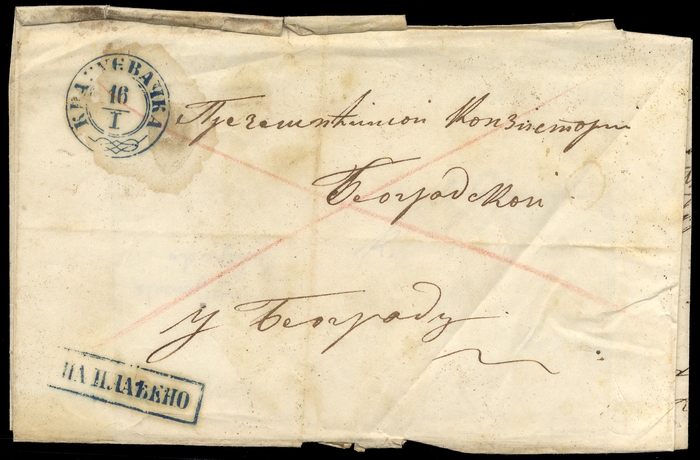 КРАГУЕВАЧКА
16
I
Пречестнѣйшой Конзисторіи
Београдской
у Београду
НАПЛАЋЕНО